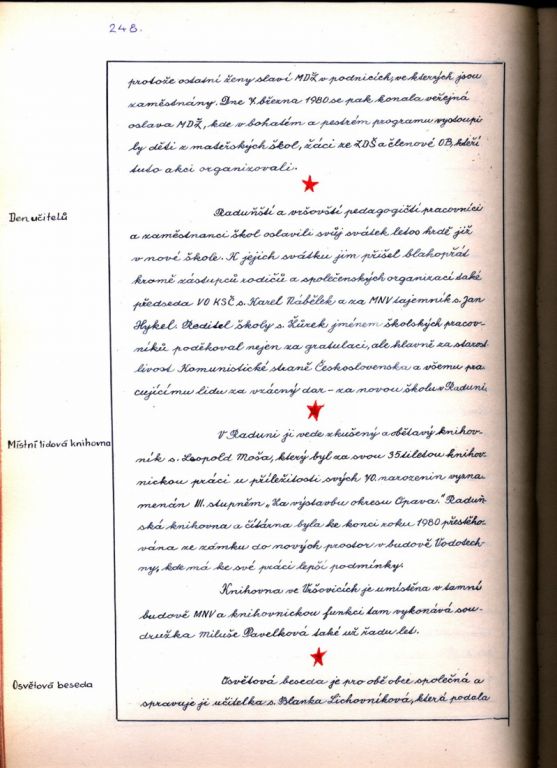 248.
protože ostatní ženy slaví MDŽ v podnicích, ve kterých jsou
zaměstnány. Dne 7. března 1980 se pak konala veřejná
oslava MDŽ, kde v bohatém a pestrém programu vystoupi
ly děti z mateřských škol, žáci ze ZDŠ a členové OB, kteří
tuto akci organizovali.
Den učitelů
Raduňští a vršovští pedagogičtí pracovníci
a zaměstnanci škol oslavili svůj svátek letos hrdě již
v nové škole. K jejich svátku jim přišel blahopřát
kromě zástupců rodičů a společenských organizací také
předseda VO KSČ s. Karel Nábělek a za MNV tajemník s. Jan
Hykel. Ředitel školy s. Kůrek jménem školských pracov-
níků poděkoval nejen za gratulaci, ale hlavně za starost
livost Komunistické straně Československa a všemu pra
cujícímu lidu za vzácný dar - za novou školu v Raduni.
Místní lidová knihovna
V Raduni ji vede zkušený a obětavý knihov-
ník s. Leopold Moša, který byl za svou 35tiletou knihov
nickou práci u příležitosti svých 70. narozenin vyzna
menán III. stupněm „Za výstavbu okresu Opava." Raduň
ská knihovna a čítárna byla ke konci roku 1980 přestěho-
vána ze zámku do nových prostor v budově Vodotech-
ny, kde má ke své práci lepší podmínky.
Knihovna ve Vršovicích je umístěna v tamní
budově MNV a knihovnickou funkci tam vykonává sou-
družka Miluše Pavelková také už řadu let.
Osvětová beseda
Osvětová beseda je pro obě obce společná a
spravuje ji učitelka s. Blanka Lichovníková, která podala